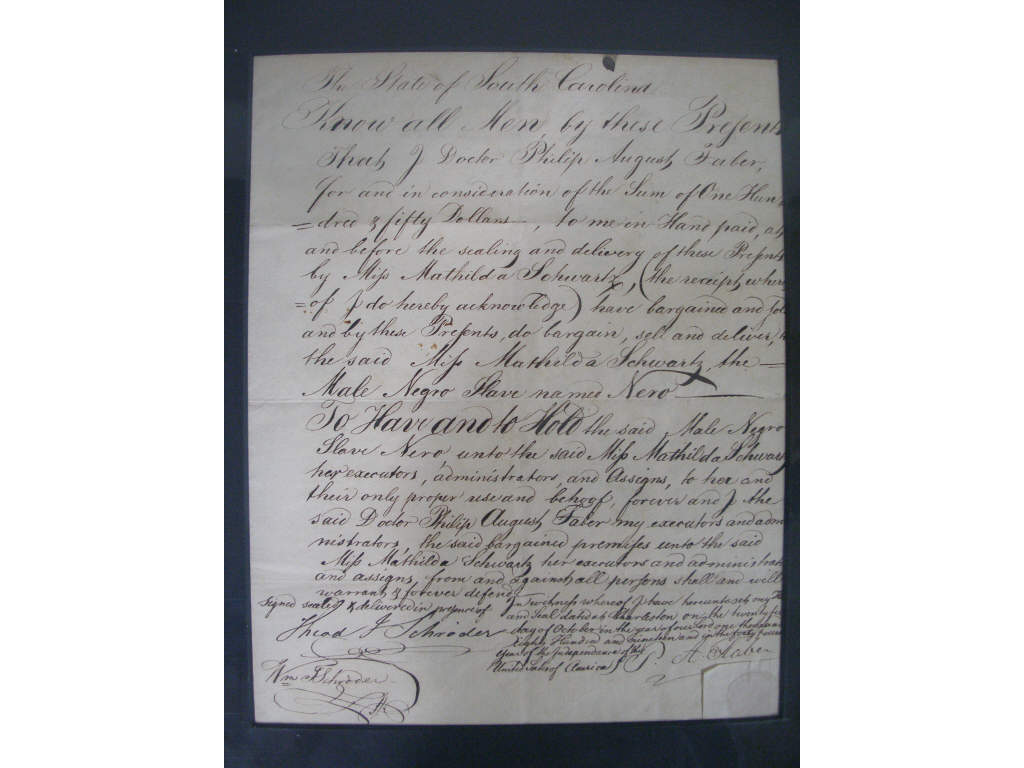 The State of South Carolina
Know all Men, by these Presents
That I Doctor Philip August Faber,
for and in consideration of the Sum of One Hun
=dred & fifty Dollars—, to me in Hand paid, at
and before the sealing and delivery of these Presents
by Miss Mathilda Schwartz, (the receipt where
=of I do hereby acknowledge) have bargained and sol
and by these Presents, do bargain, sell and deliver, t
the said Miss Mathilda Schwartz, the —
Male Negro Slave named Nero —
To Have and to Hold the said Male Negro
Slave Nero, unto the said Miss Mathilda Schwart
her executors, administrators, and Assigns, to her and
their only proper use and behoof, forever and I the
said Doctor Philip August Faber my executors and adm
nistrators, the said bargained premises unto the said
Miss Mathilda Schwartz her executors and administrat
and assigns, from and against all persons shall and will
warrant & forever defend
Signed sealed & delivered in presence of
Thead J Schroder
Wm J Schroder
In Witness whereof I have hereunto set my
and seal dated at Charleston on the twenty
day of October in the year of our Lord one thousan
Eight Hundred and nineteen and in the forty
year of the Independence of the
United States of America
P. A. Faber